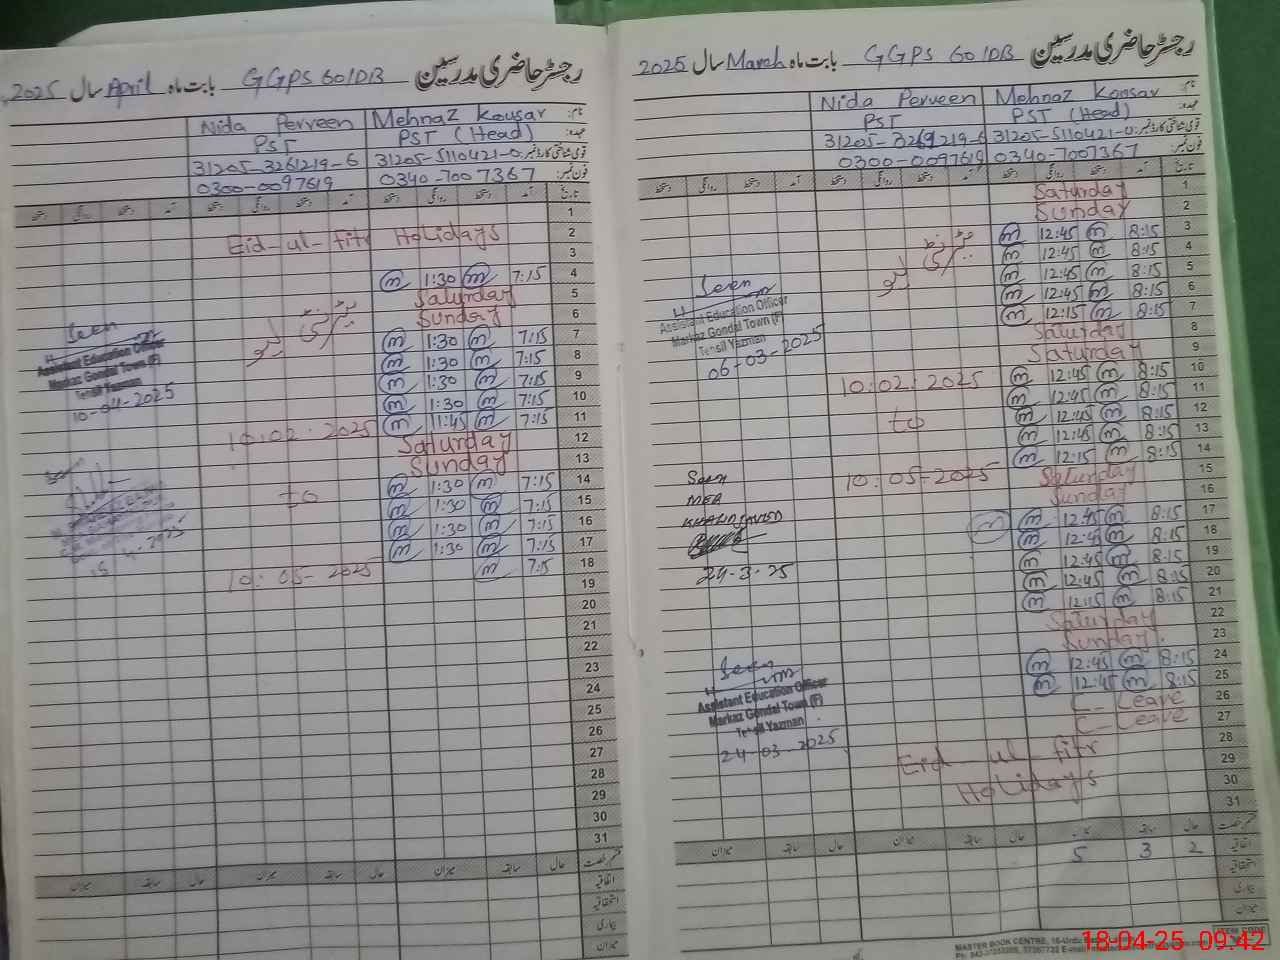 رجسٹر حاضری مدرسین GGPS 60/DB بابت ماہ April سال 2025
Nida Perveen Mehnaz Kousar نام:
PST PST (Head) عہدہ:
31205-3261219-6 31205-5110421-0 قومی شناختی کارڈ نمبر:
0300-0097619 0340-7007367 فون نمبر:
تاریخ آمد دستخط روانگی دستخط آمد دستخط روانگی دستخط آمد دستخط روانگی دستخط
1
Eid-ul-fitr Holidays 2
3
m 1:30 m 7:15 4
Saturday 5
Sunday 6
m 1:30 m 7:15 7
m 1:30 m 7:15 8
m 1:30 m 7:15 9
m 1:30 m 7:15 10
m 11:45 m 7:15 11
Saturday 12
Sunday 13
m 1:30 m 7:15 14
m 1:30 m 7:15 15
m 1:30 m 7:15 16
m 1:30 m 7:15 17
m 7:15 18
19
20
21
22
23
24
25
26
27
28
29
30
31
میٹرنٹی
لیو
10:02.2025
to
10:05-2025
Seen
Assistant Education Officer
Markaz Gondal Town (F)
Tehsil Yazman
10-04-2025
میزان سابقہ حال میزان سابقہ حال میزان سابقہ حال قسم رخصت
اتفاقیہ
استحقاقیہ
بیماری
میزان
رجسٹر حاضری مدرسین GGPS 60/DB بابت ماہ March سال 2025
Nida Perveen Mehnaz Kousar نام:
PST PST (Head) عہدہ:
31205-3261219-6 31205-5110421-0 قومی شناختی کارڈ نمبر:
0300-0097619 0340-7007367 فون نمبر:
تاریخ آمد دستخط روانگی دستخط آمد دستخط روانگی دستخط آمد دستخط روانگی دستخط
Saturday 1
Sunday 2
m 12:45 m 8:15 3
m 12:45 m 8:15 4
m 12:45 m 8:15 5
m 12:45 m 8:15 6
m 12:15 m 8:15 7
Saturday 8
Saturday 9
m 12:45 m 8:15 10
m 12:45 m 8:15 11
m 12:45 m 8:15 12
m 12:45 m 8:15 13
m 12:15 m 8:15 14
Saturday 15
Sunday 16
m 12:45 m 8:15 17
m 12:45 m 8:15 18
m 12:45 m 8:15 19
m 12:45 m 8:15 20
m 12:15 m 8:15 21
Saturday 22
Sunday. 23
m 12:45 m 8:15 24
m 12:45 m 8:15 25
C-Leave 26
C-Leave 27
Eid-ul-fitr 28
29
Holidays 30
31
میٹرنٹی
لیو
10:02:2025
to
10:05-2025
Seen
Assistant Education Officer
Markaz Gondal Town (F)
Tehsil Yazman
06-03-2025
Seen
MEA
KHALID JAVED
24-3-25
Seen
Assistant Education Officer
Markaz Gondal Town (F)
Tehsil Yazman
24-03-2025
میزان سابقہ حال میزان سابقہ حال میزان سابقہ حال قسم رخصت
5 3 2 اتفاقیہ
استحقاقیہ
بیماری
میزان
MASTER BOOK CENTRE, 16-Urdu
ITEM CODE
18-04-25 09:42